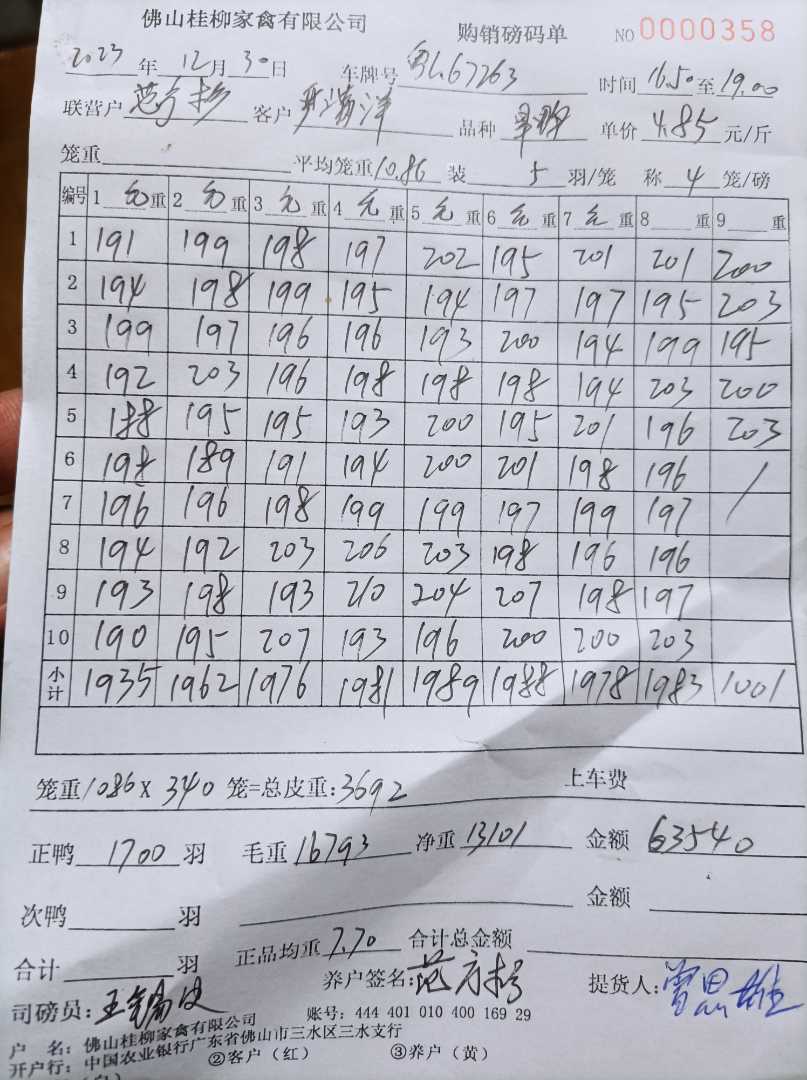 佛山桂柳家禽有限公司 购销磅码单 NO 0000358
2023年 12月 30日 车牌号 粤L67263 时间 16.50 至 19.00
联营户 范 客户 洋 品种 单价 4.85 元/斤
笼重 平均笼重 10.86 装 5 羽/笼 称 4 笼/磅
编号 1 毛重 2 毛重 3 毛重 4 毛重 5 毛重 6 毛重 7 毛重 8 重 9 重
1 191 199 198 197 202 195 201 201 200
2 194 198 199 195 194 197 197 195 203
3 199 197 196 196 193 200 194 199 195
4 192 203 196 198 198 198 194 203 200
5 188 195 195 193 200 195 201 196 203
6 198 189 191 194 200 201 198 196 /
7 196 196 198 199 199 197 199 197
8 194 192 203 206 203 198 196 196
9 193 198 193 210 204 207 198 197
10 190 195 207 193 196 200 200 203
小计 1935 1962 1976 1981 1989 1988 1978 1983 1001
笼重 1086 X 340 笼=总皮重: 3692 上车费
正鸭 1700 羽 毛重 16793 净重 13101 金额 63540
次鸭 羽 金额
合计 羽 正品均重 7.70 合计总金额
司磅员: 王 养户签名: 范 提货人: 曾思雄
户 名: 佛山桂柳家禽有限公司 账号: 444 401 010 400 169 29
开户行: 中国农业银行广东省佛山市三水区三水支行
②客户（红） ③养户（黄）